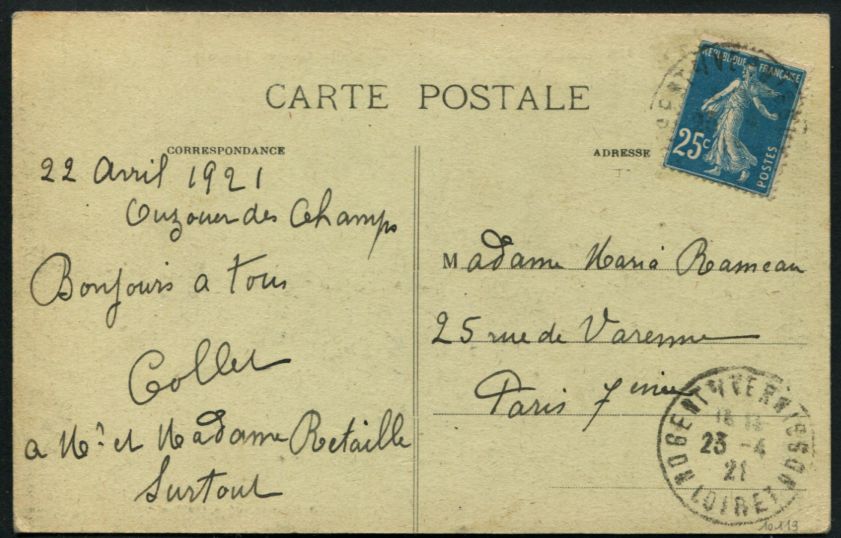 CARTE POSTALE
CORRESPONDANCE
22 Avril 1921
Ouzouer des Champs
Bonjours a tous
Collet
a Mr et Madame Retaille
Surtout
ADRESSE
REPUBLIQUE FRANÇAISE
25c
POSTES
Madame Maria Rameau
25 rue de Varenne
Paris 7eme
NOGENT S VERNISSON
23 - 4
21
LOIRET
10119